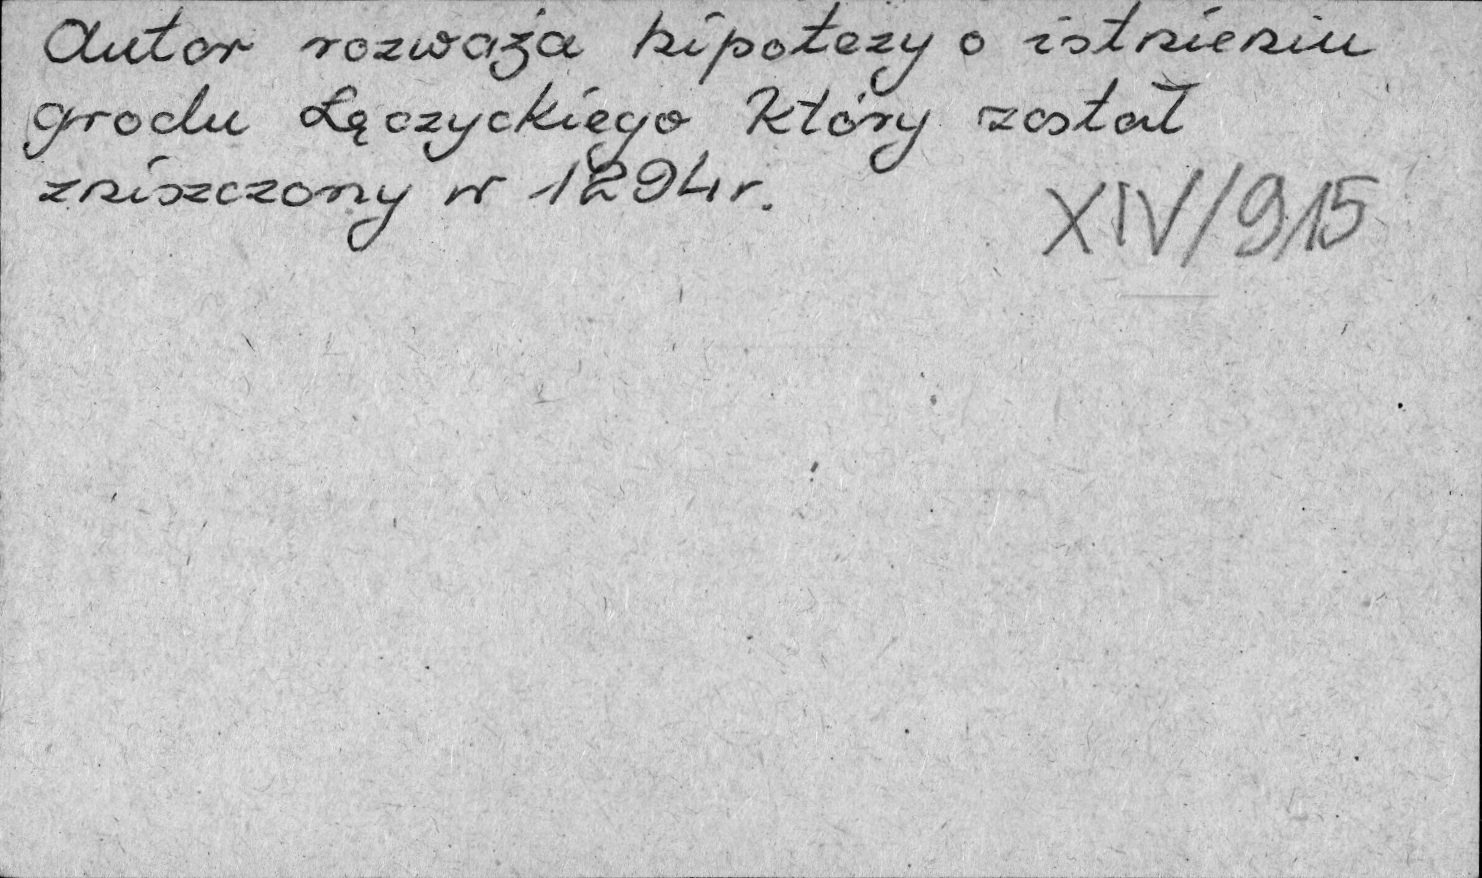 Autor rozważa hipotezy o istnieniu
grodu Łęczyckiego który został
zniszczony w 1294 r.
XIV/915